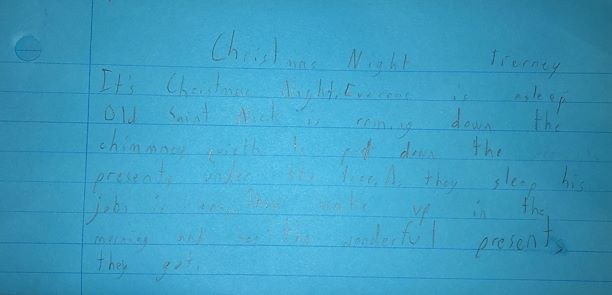 Christmas Night Tierney
It's Christmas Night. Everone is asleep
Old Saint Nick is coming down the
chimmney to put down the
presents under the tree. As they sleep his
jobs is They wake up in the
morning and see the wonderful presents
they got.